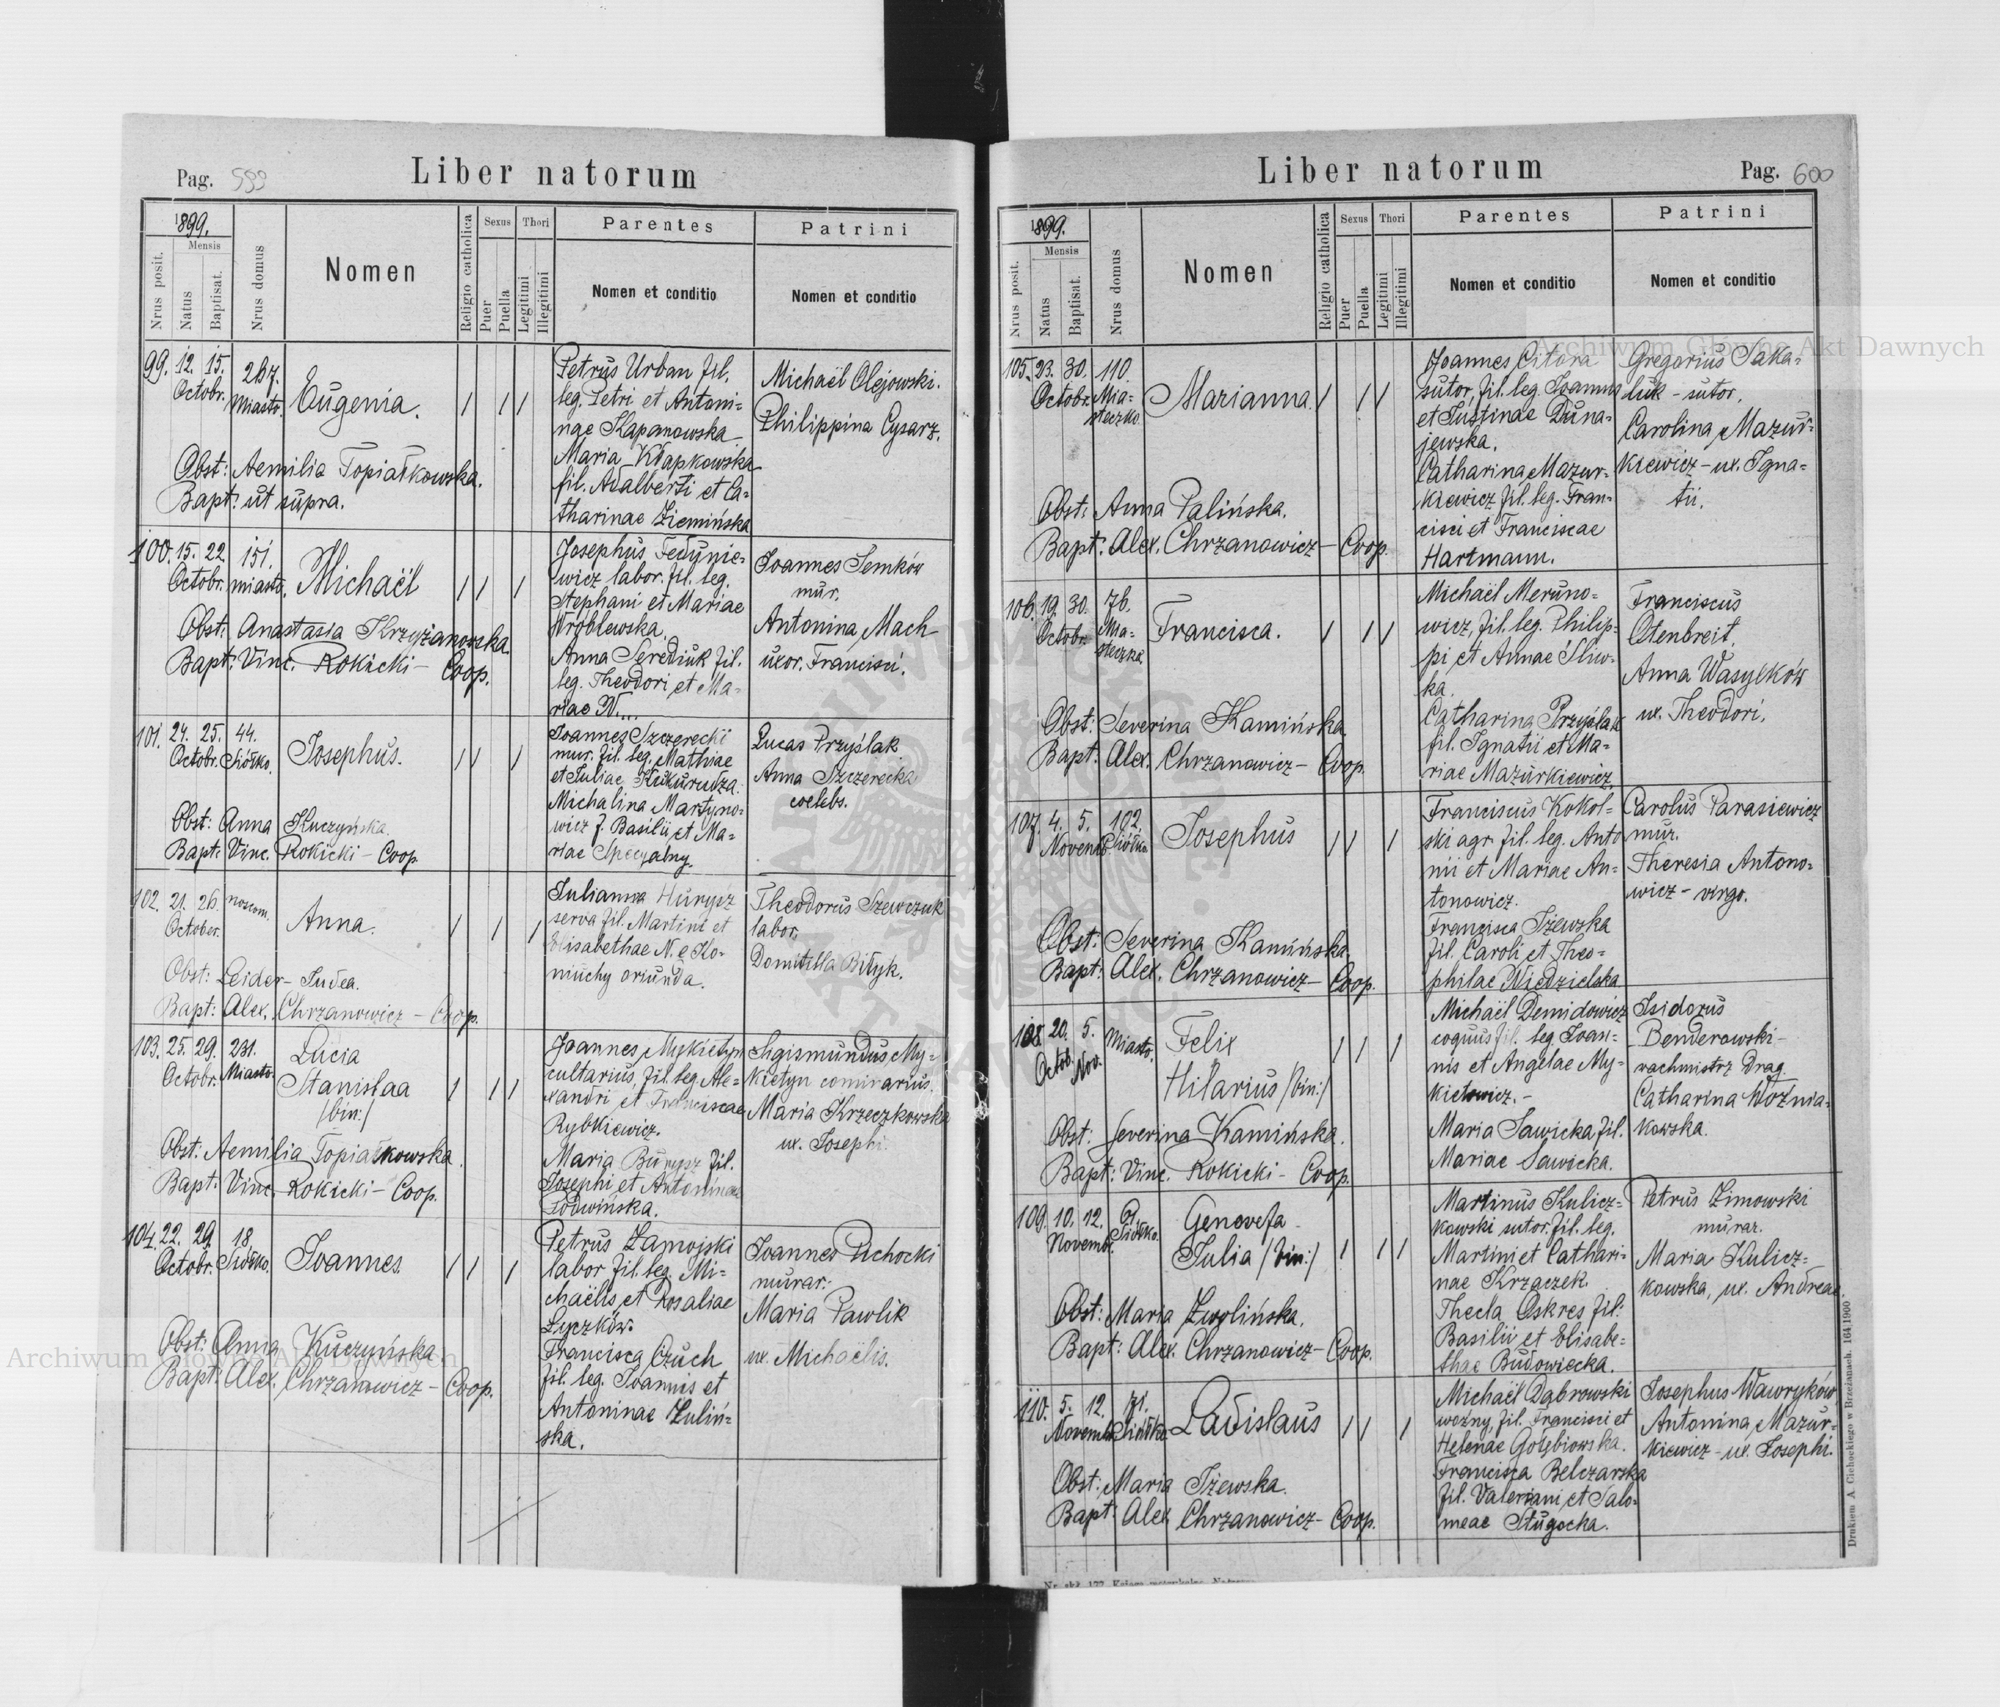 Pag. 599
Liber natorum
1899.
Nrus posit.
Mensis
Natus
Baptisat.
Nrus domus
Nomen
Religio catholica
Sexus
Puer
Puella
Thori
Legitimi
Illegitimi
Parentes
Nomen et conditio
Patrini
Nomen et conditio
99. 12. 15. Octobr.
Miasto.
Eugenia.
Obst: Aemilia Topiałkowska.
Bapt: ut supra.
Petrus Urban fil.
leg. Petri et Antoni=
nae Kapanowska.
Maria Kłapkowska
fil. Adalberti et Ca-
tharinae Ziemińska
Michaël Olejowski.
Philippina Cysarz.
100. 15. 22. Octobr.
151. miasto.
Michaël
Obst: Anastasia Krzyżanowska.
Bapt: Vinc. Rokicki - Coop.
Josephus Fedynie=
wicz labor. fil. leg.
Stephani et Mariae
Wróblewska.
Anna Serediuk fil.
leg. Theodori et Ma-
riae N...
Joannes Semków
mur.
Antonina Mach
uxor. Francisci.
101. 24. 25. Octobr.
44. Siółko.
Josephus.
Obst: Anna Kuczyńska.
Bapt: Vinc. Rokicki - Coop
Joannes Szczerecki
mur. fil. leg. Mathiae
et Juliae Kukurudza.
Michalina Martyno-
wicz f. Basilii et Ma-
riae Specyalny.
Lucas Przyślak
Anna Szczerecka
coelebs.
102. 21. 26. October.
noscom.
Anna.
Obst: Leider - Judea.
Bapt: Alex. Chrzanowicz - Coop.
Julianna Hurysz
serva fil. Martini et
Elisabethae N. e Ko-
niuchy oriunda.
Theodorus Szewczuk
labor.
Domitilla Biłyk.
103. 25. 29. Octobr.
231. Miasto
Lucia
Stanisłaa
/bin:/
Obst: Aemilia Topiałkowska.
Bapt: Vinc. Rokicki - Coop.
Joannes Mykietyn
cultarius, fil. leg. Ale-
xandri et Franciscae
Rybkiewicz.
Maria Burysz fil.
Josephi et Antoninae
Łodwińska.
Sigismundus My-
kietyn
Maria Krzeczkowska
ux. Josephi.
104. 22. 29. Octobr.
18. Siółko.
Joannes.
Obst: Anna Kuczyńska
Bapt: Alex. Chrzanowicz - Coop.
Petrus Zamojski
labor fil. leg. Mi-
chaëlis et Rosaliae
Łyczków.
Francisca Czuch
fil. leg. Joannis et
Antoninae Zuliń-
ska.
Joannes Pichocki
murar.
Maria Pawlik
ux. Michaëlis.
Liber natorum
Pag. 600
1899.
Nrus posit.
Mensis
Natus
Baptisat.
Nrus domus
Nomen
Religio catholica
Sexus
Puer
Puella
Thori
Legitimi
Illegitimi
Parentes
Nomen et conditio
Patrini
Nomen et conditio
105. 23. 30. Octobr.
110. Mia-
steczko.
Marianna.
Obst: Anna Palińska.
Bapt: Alex. Chrzanowicz - Coop.
Joannes Citara
sutor, fil. leg. Joannis
et Justinae Duna-
jewska.
Catharina Mazur-
kiewicz fil. leg. Fran-
cisci et Franciscae
Hartmann.
Gregorius Saka-
luk - sutor.
Carolina Mazur-
kiewicz - ux. Igna-
tii.
106. 19. 30. Octobr.
76. Mia-
steczko.
Francisca.
Obst: Severina Kamińska.
Bapt: Alex. Chrzanowicz - Coop.
Michaël Meruno-
wicz, fil. leg. Philip-
pi et Annae Sliw-
ka.
Catharina Przyślak
fil. Ignatii et Ma-
riae Mazurkiewicz.
Franciscus
Otenbreit.
Anna Wasylków
ux. Theodori.
107. 4. 5. Novemb.
102. Siółko
Josephus
Obst: Severina Kamińska.
Bapt: Alex. Chrzanowicz - Coop.
Franciscus Kokol-
ski agr. fil. leg. Anto
nii et Mariae An-
tonowicz.
Francisca Iżewska
fil. Caroli et Theo-
philae Niedzielska
Carolus Parasiewicz
mur.
Theresia Antono-
wicz - virgo.
108. 20. Octob. 5. Nov.
Miasto.
Felix
Hilarius /bin:/
Obst: Severina Kamińska.
Bapt: Vinc. Rokicki - Coop.
Michaël Demidowicz
coquus fil. leg. Joan-
nis et Angelae My-
kietowicz. -
Maria Sawicka fil.
Mariae Sawicka.
Isidorus
Benderowski -
vachmistrz Drag.
Catharina Woźnia-
kowska.
109. 10. 12. Novemb.
Siółko.
Genovefa -
Julia /bin:/
Obst: Maria Zwolińska.
Bapt: Alex. Chrzanowicz - Coop.
Martinus Kulicz-
kowski sutor fil. leg.
Martini et Cathari-
nae Krzaczek.
Thecla Oskres fil.
Basilii et Elisabe-
thae Budowiecka.
Petrus Zimowski
murar.
Maria Kulicz-
kowska, ux. Andreae.
110. 5. 12. Novemb.
71. Siółko
Ladislaus
Obst: Maria Iżewska.
Bapt: Alex. Chrzanowicz - Coop.
Michaël Dąbrowski
woźny, fil. Francisci et
Helenae Gołębiowska.
Francisca Belczarska
fil. Valeriani et Salo-
meae Sługocka.
Josephus Wawryków
Antonina Mazur-
kiewicz - ux. Josephi.
Drukiem A. Ciehockiego w Brzeżanach. 164/1900
Archiwum Główne Akt Dawnych
Archiwum Główne Akt Dawnych